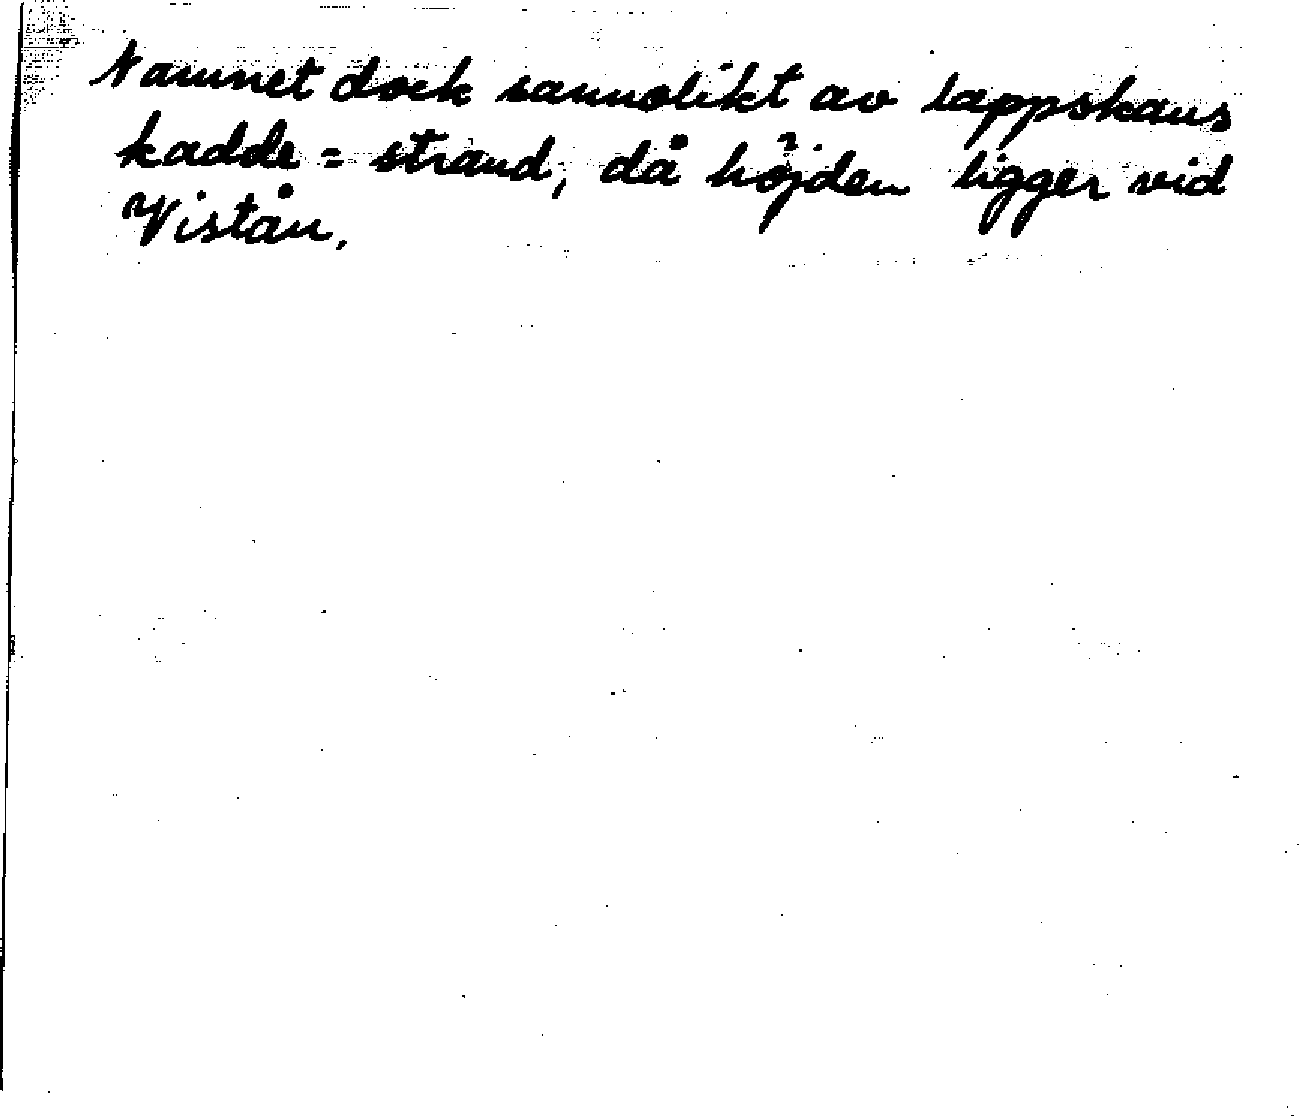 Namnet dock sannolikt av lappskans
kadde = strand, då höjden ligger vid
Vistån.